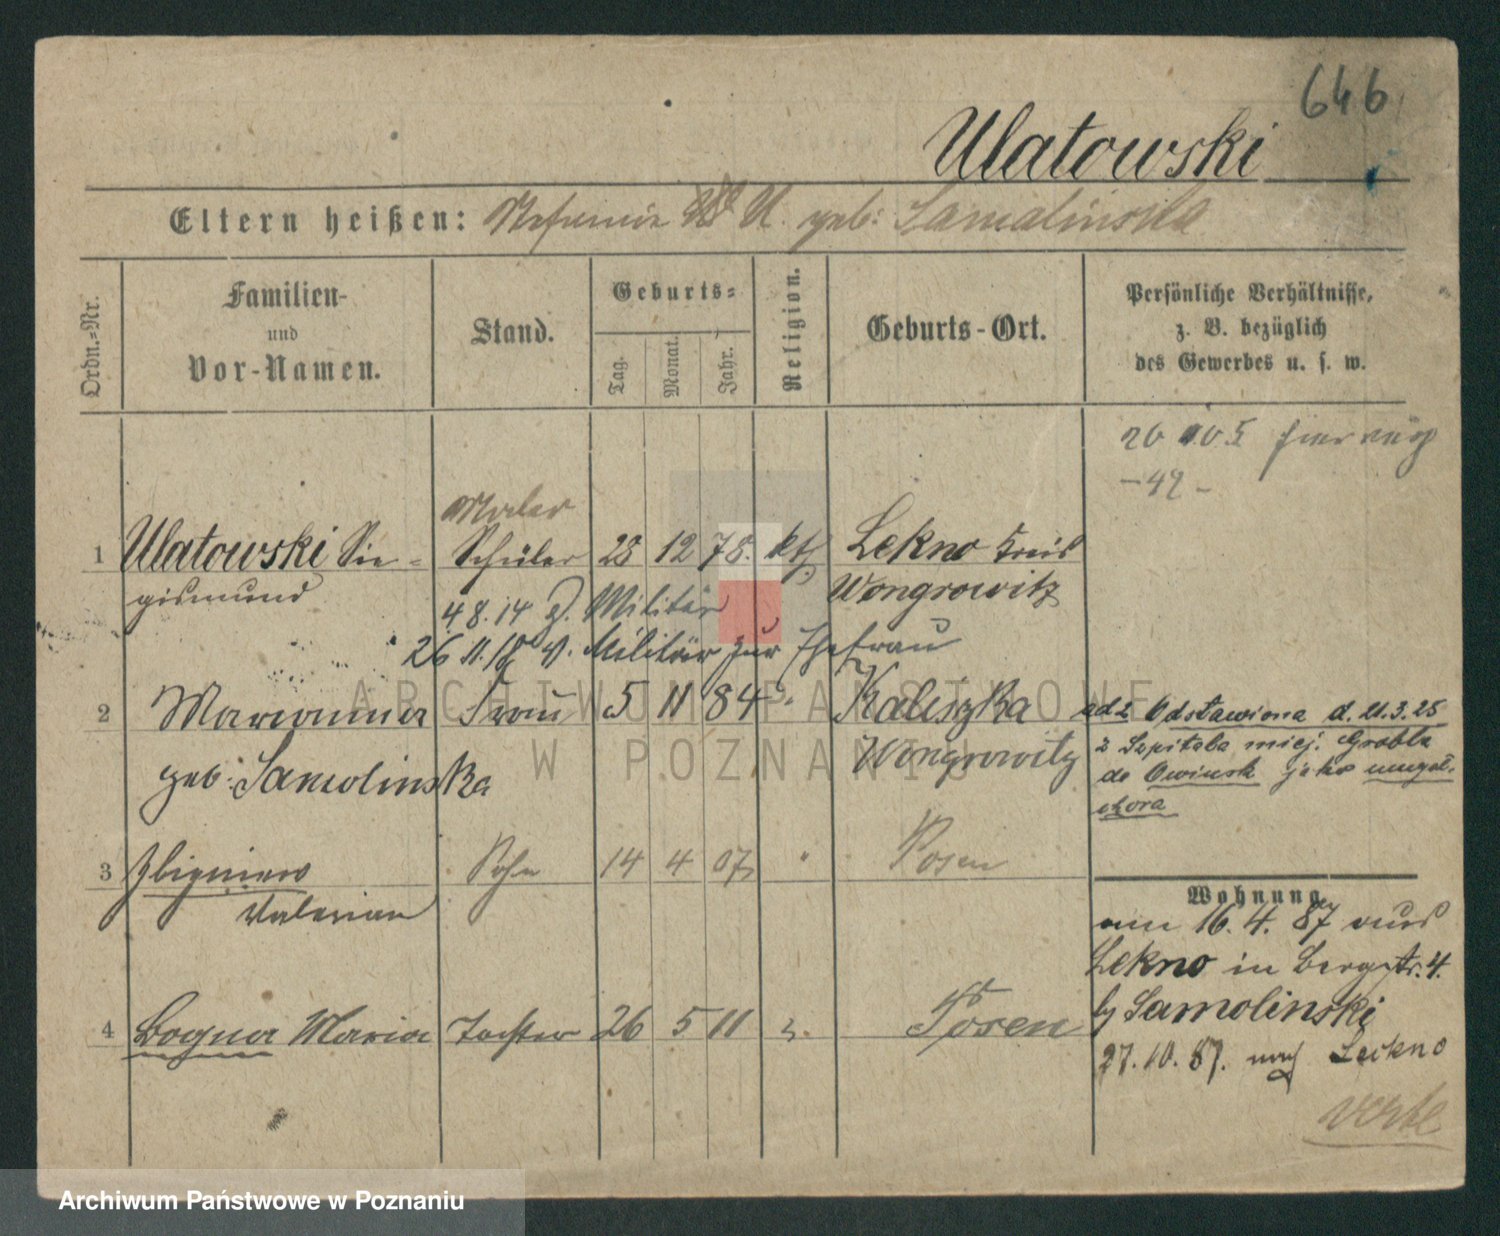 646
Ulatowski
Eltern heißen: U. geb: Samolinska
Ordn.=Nr.
Familien-
und
Vor-Namen.
Stand.
Geburts=
Tag.
Monat.
Jahr.
Religion.
Geburts-Ort.
Persönliche Verhältnisse,
z. B. bezüglich
des Gewerbes u. s. w.
Maler
1 Ulatowski Sie= Schüler 28 12 78. kth Lekno Kreis
gismund Wongrowitz
4 8. 14 z. Militär
26 11. 18 v. Militär zur Ehefrau
2 Marianna Frau 5 11 84 " Kaliszka
geb. Samolinska Wongrowitz
ad 2 Odstawiona d. 21.3.25
z Szpitala miej. Grobla
do Owinsk jako umysł.
chora
3 Zbigniew Sohn 14 4 07 " Posen
Valerian
4 Bogna Maria Tochter 26 5 11 ". Posen
Wohnung
am 16. 4. 87 aus
Lekno in Bergstr. 4.
b/ Samolinski
27. 10. 87. nach Lekno
ARCHIWUM PAŃSTWOWE
W POZNANIU
Archiwum Państwowe w Poznaniu